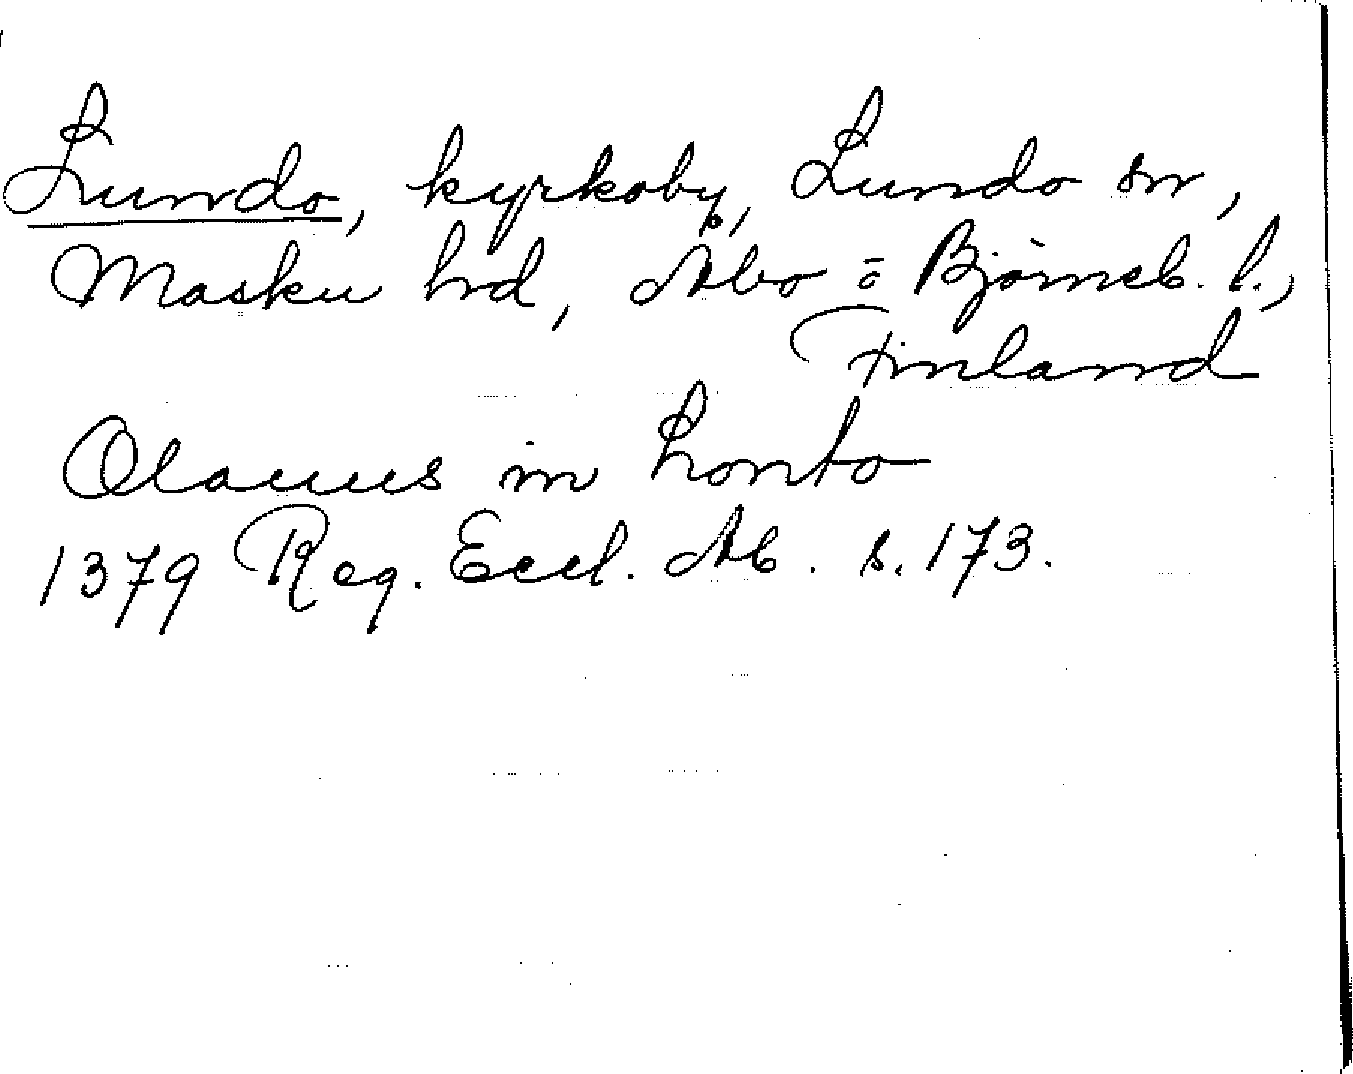 Lundo, kyrkoby, Lundo sn,
Masku hrd, Åbo o Björneb. l.,
Finland
Olauus in Lonto
1379 Reg. Eccl. Ab. s. 173.